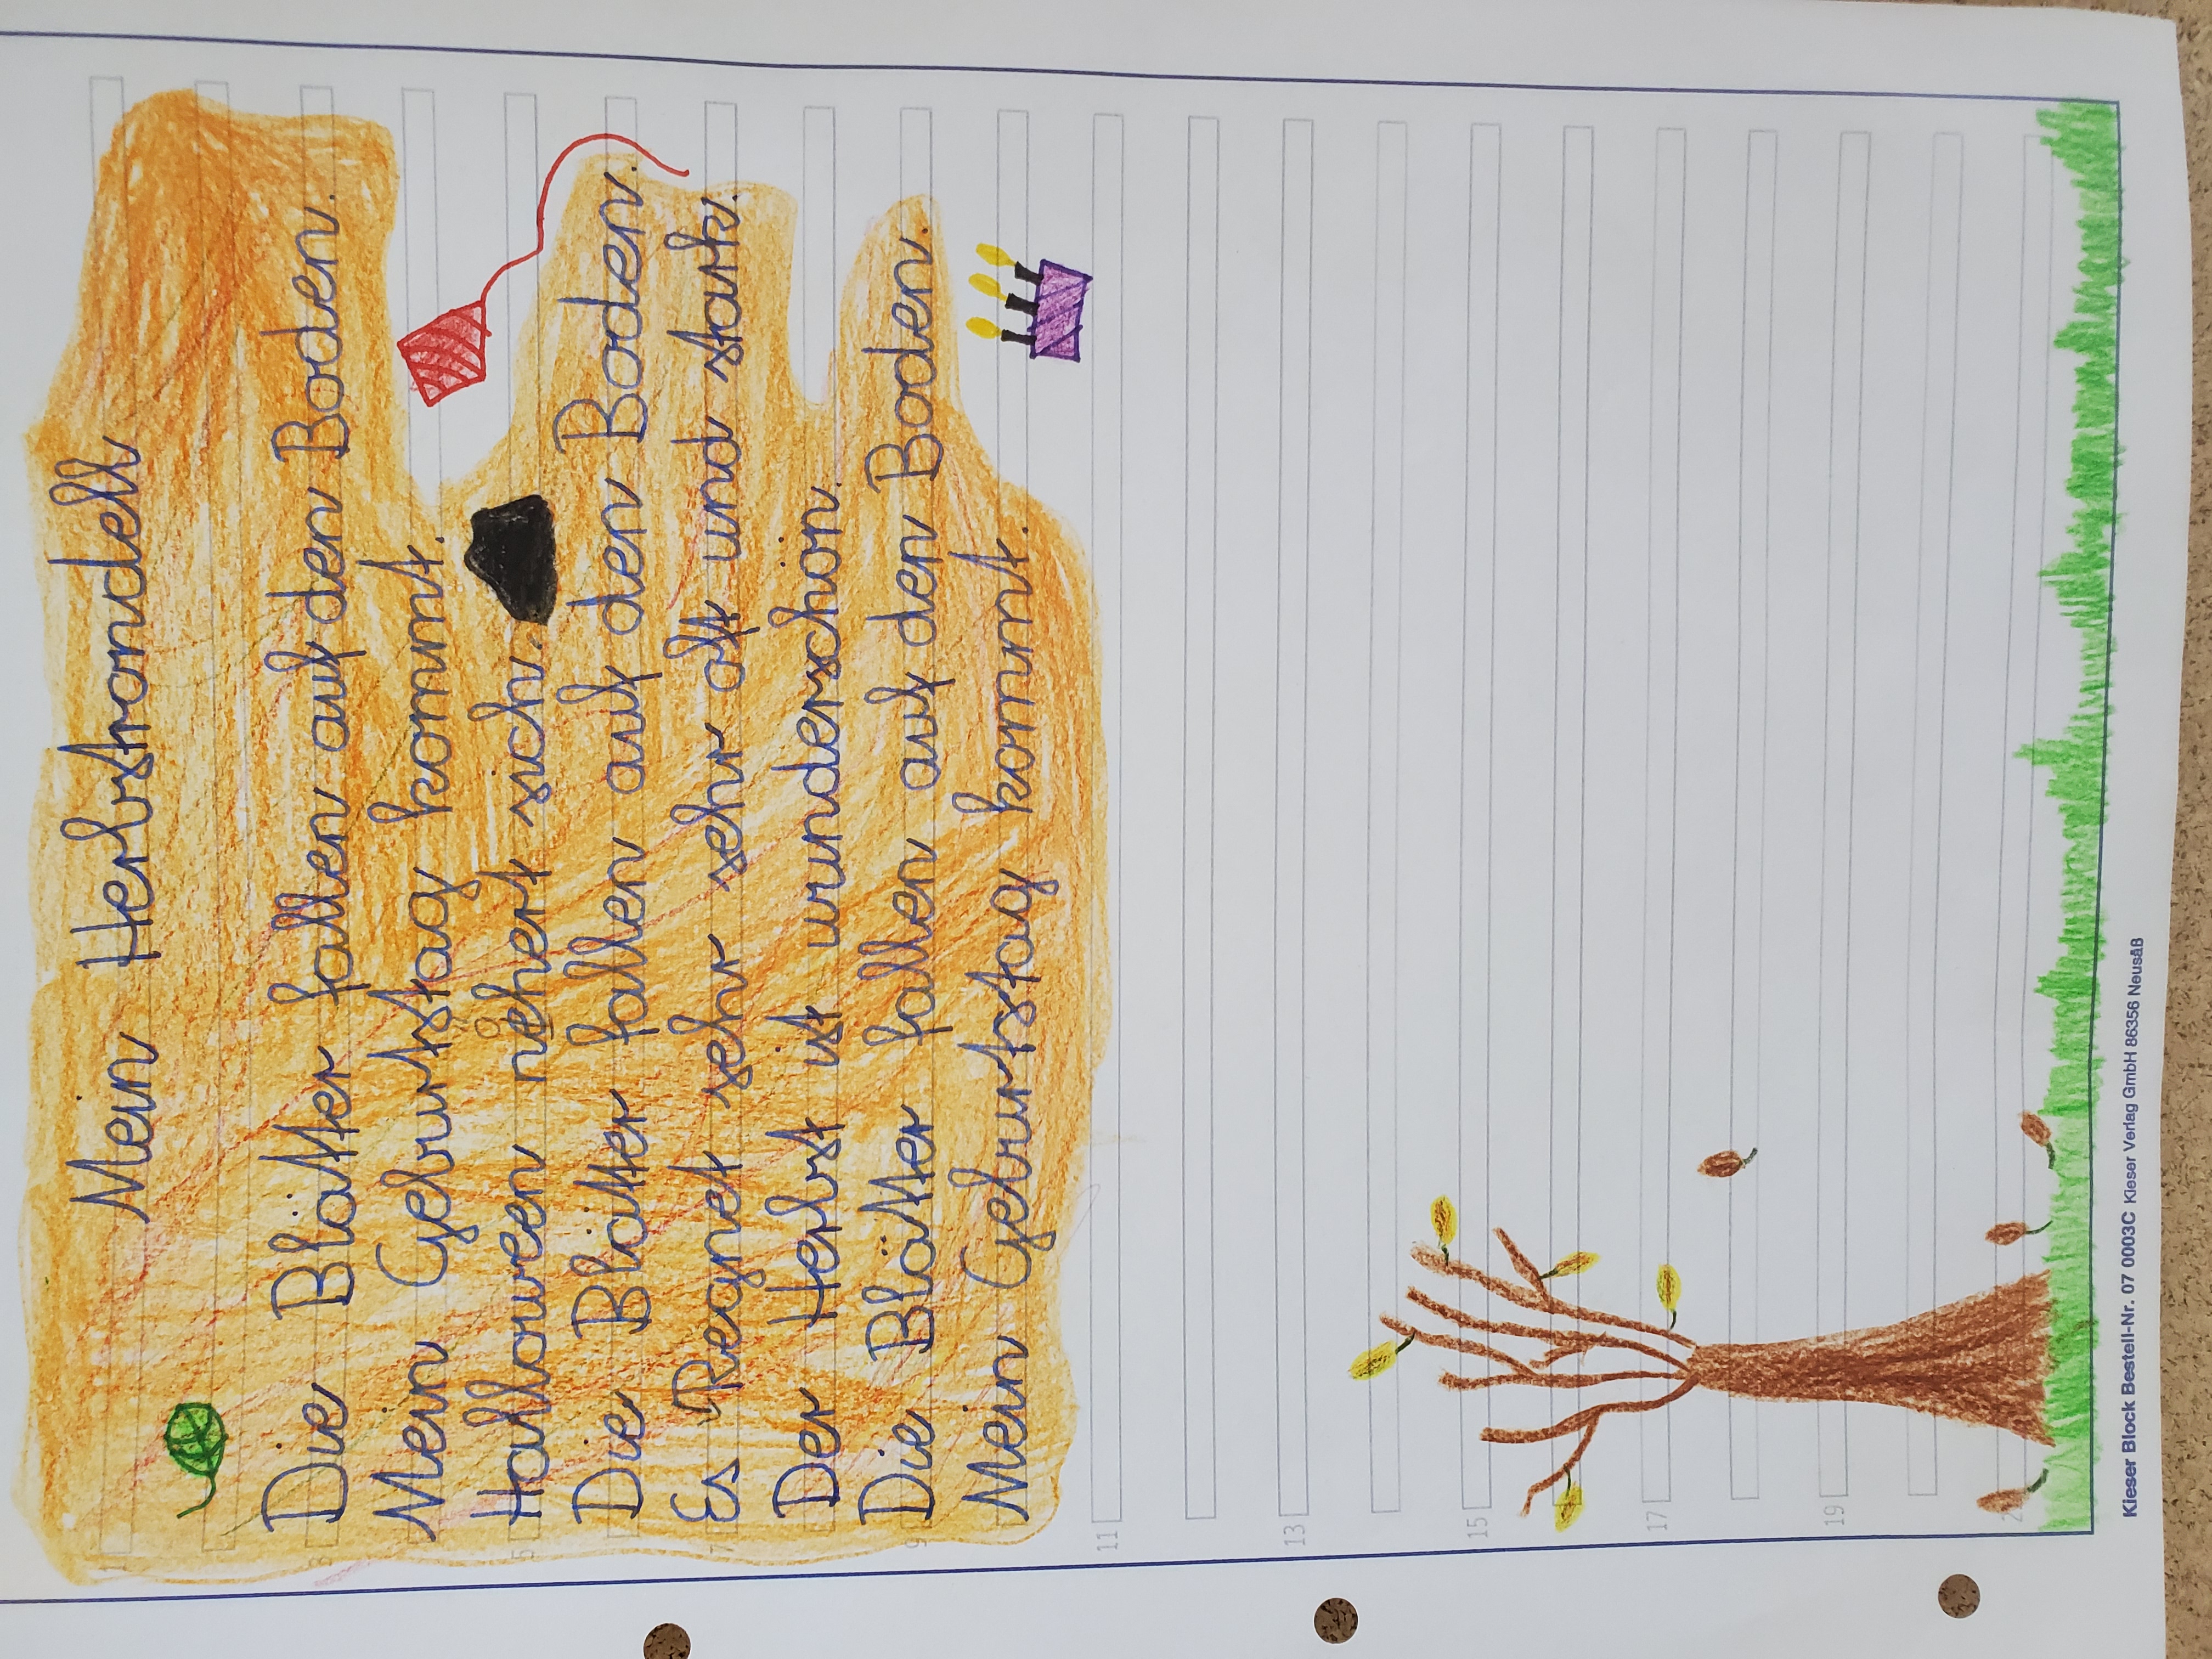 Mein Herbstrondell
Die Blätter fallen auf den Boden.
Mein Geburtstag kommt.
Hallowen nehert sich.
Die Blätter fallen auf den Boden.
Es Regnet sehr sehr oft und stark.
Der Herbst ist wunderschön.
Die Blätter fallen auf den Boden.
Mein Geburtstag kommt.
11
13
15
17
19
Kieser Block Bestell-Nr. 07 0003C Kieser Verlag GmbH 86356 Neusäß